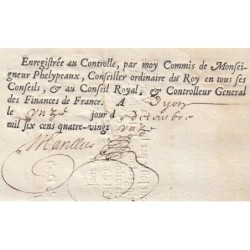 Enregistrée au Controlle, par moy Commis de Monsei-
gneur Phelypeaux, Conseiller ordinaire du Roy en tous ses
Conseils, & au Conseil Royal, & Controlleur General
des Finances de France. A Dyon
le unze jour d
mil six cens quatre-vingt unze